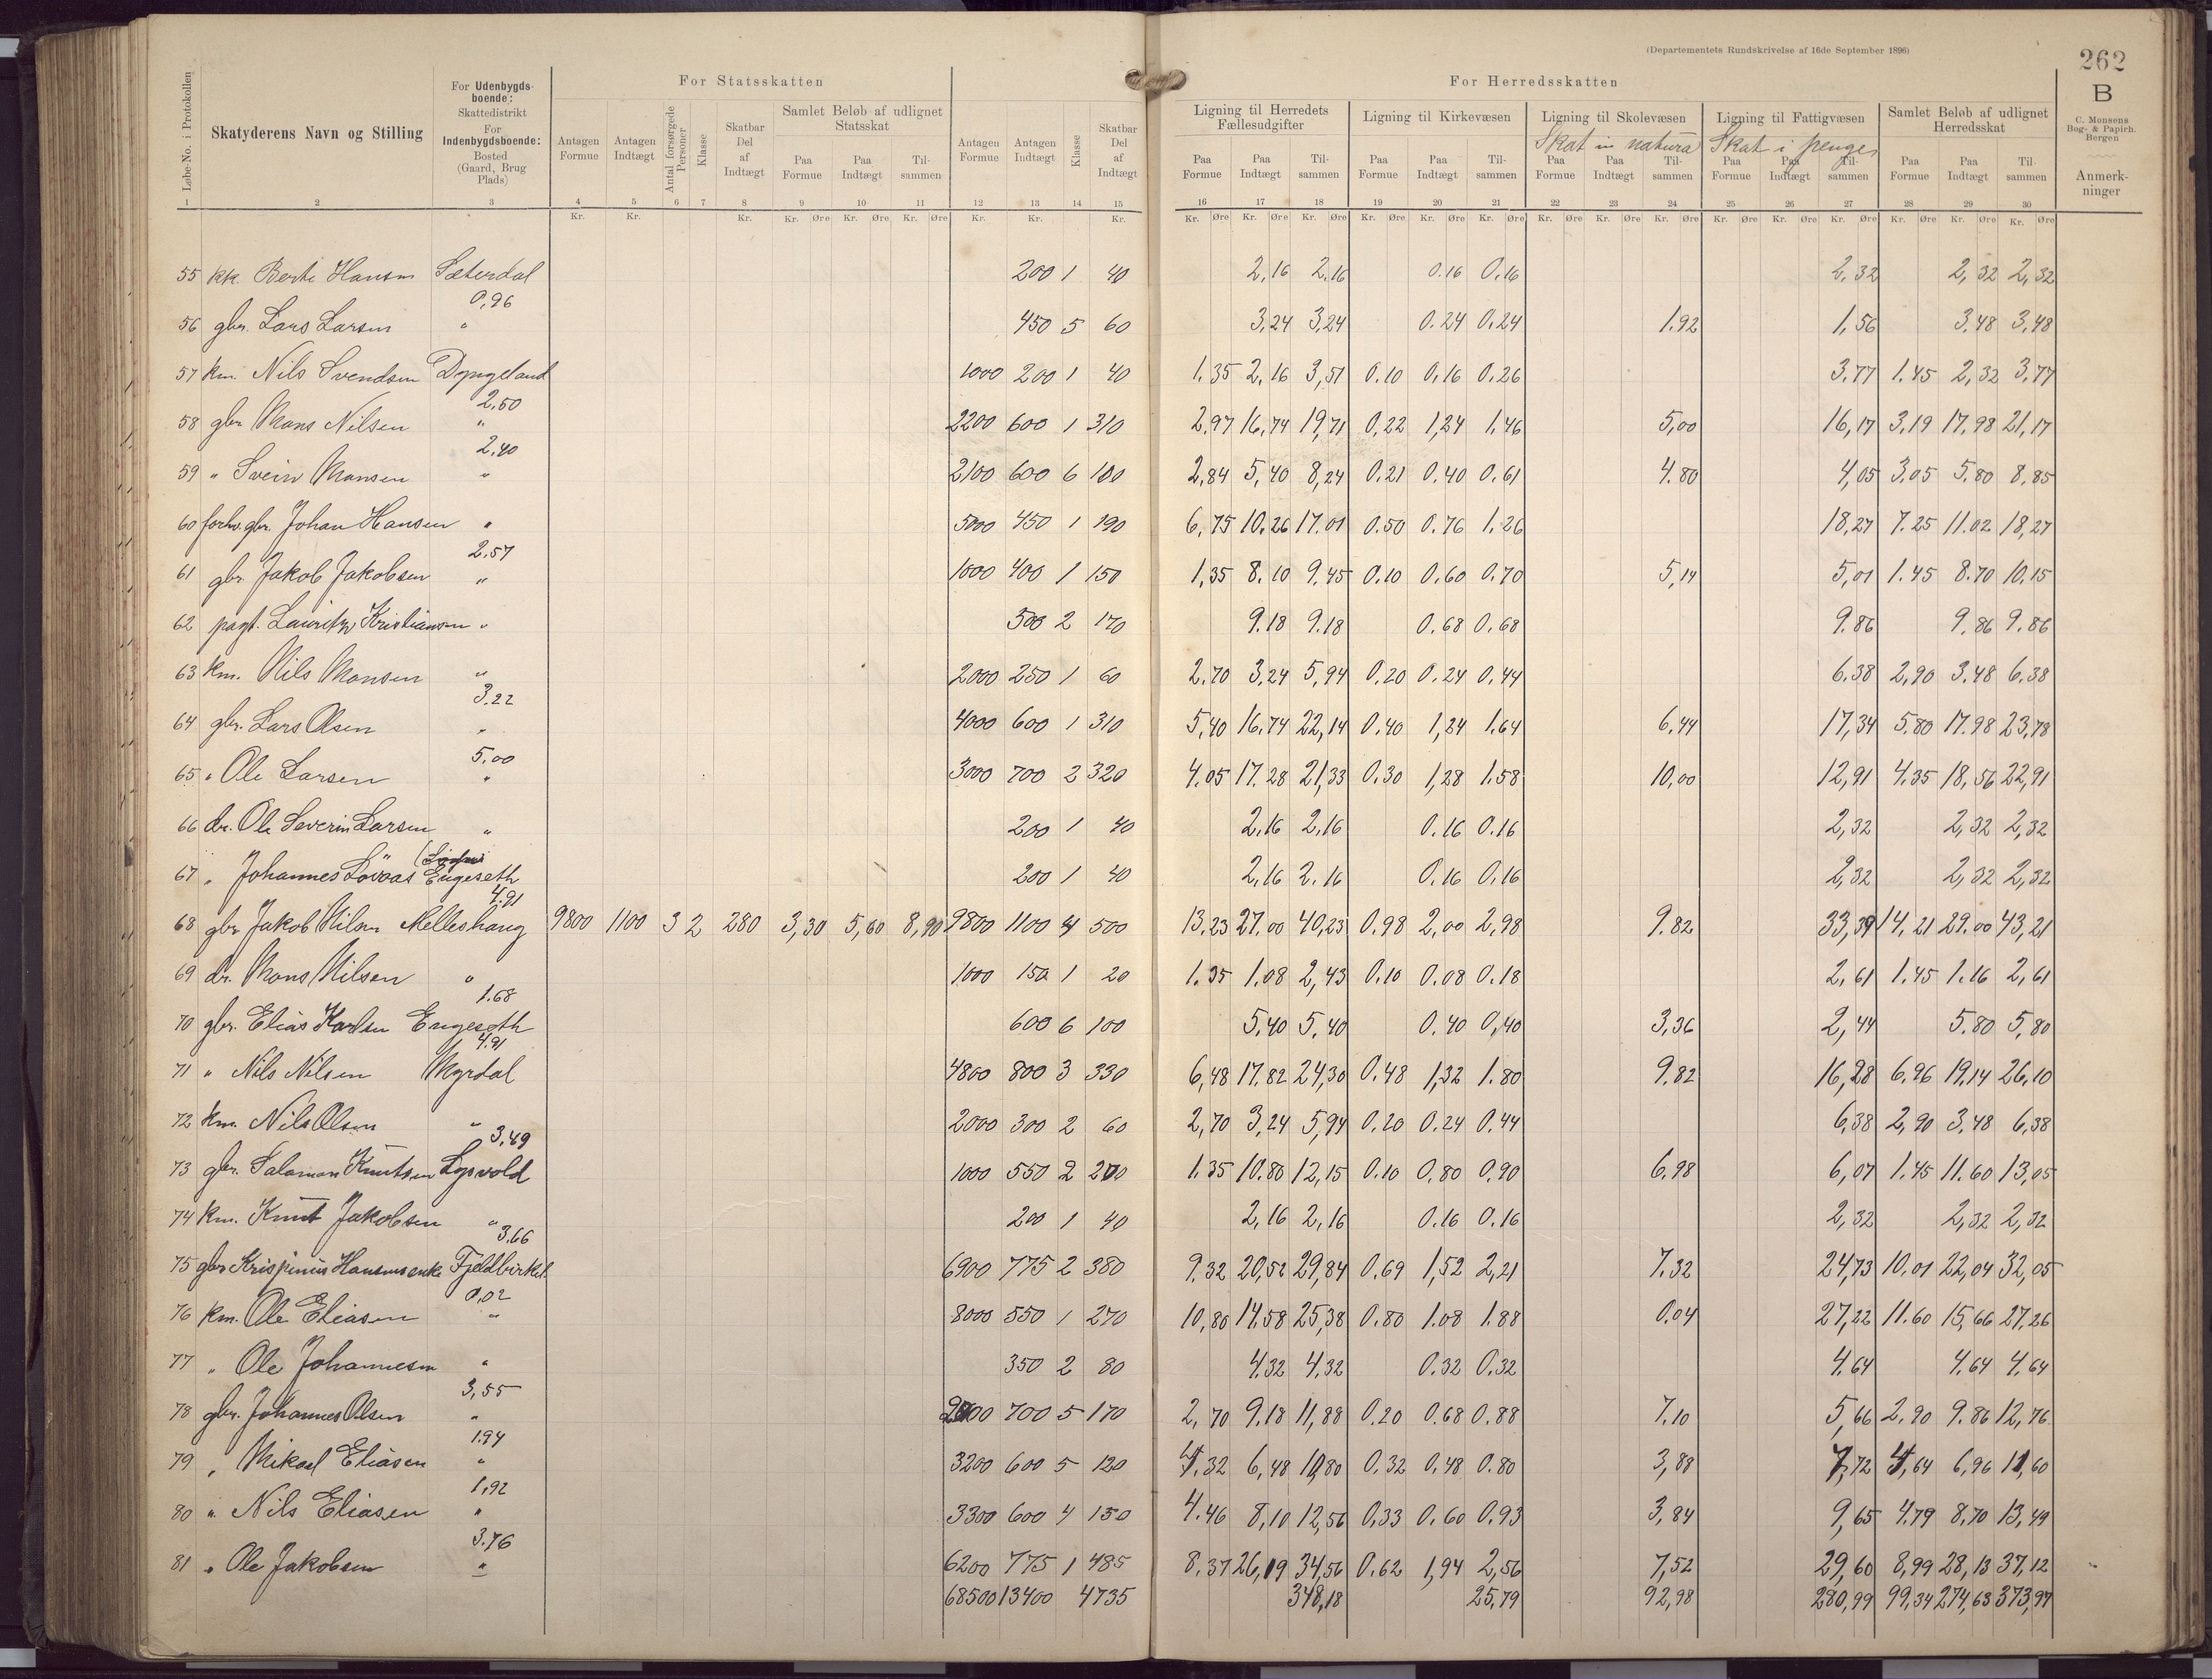 (Departementets Rundskrivelse af 16de September 1896)
262
B
C. Monsens Bog- & Papirh. Bergen
Løbe-No. i Protokollen | Skatyderens Navn og Stilling | For Udenbygdsboende: Skattedistrikt For Indenbygdsboende: Bosted (Gaard, Brug Plads) | For Statsskatten | For Herredsskatten
Antagen Formue | Antagen Indtægt | Antal forsørgede Personer | Klasse | Skatbar Del af Indtægt | Samlet Beløb af udlignet Statsskat | Antagen Formue | Antagen Indtægt | Klasse | Skatbar Del af Indtægt | Ligning til Herredets Fællesudgifter | Ligning til Kirkevæsen | Ligning til Skolevæsen | Ligning til Fattigvæsen | Samlet Beløb af udlignet Herredsskat | Anmerkninger
Skat in natura | Skat i penger
Paa Formue | Paa Indtægt | Tilsammen | Paa Formue | Paa Indtægt | Tilsammen | Paa Formue | Paa Indtægt | Tilsammen | Paa Formue | Paa Indtægt | Tilsammen | Paa Formue | Paa Indtægt | Tilsammen | Paa Formue | Paa Indtægt | Tilsammen
1 2 3 4 5 6 7 8 9 10 11 12 13 14 15 16 17 18 19 20 21 22 23 24 25 26 27 28 29 30
Kr. Kr. Kr. Kr. Øre Kr. Øre Kr. Øre Kr. Kr. Kr. Kr. Øre Kr. Øre Kr. Øre Kr. Øre Kr. Øre Kr. Øre Kr. Øre Kr. Øre Kr. Øre Kr. Øre Kr. Øre Kr. Øre Kr. Øre Kr. Øre Kr. Øre
55 kk. Berte Hansen Sæterdal 200 1 40 2,16 2.16 0.16 0.16 2,32 2,32 2,32
0,96
56 gbr. Lars Larsen " 450 5 60 3,24 3,24 0.24 0.24 1.92 1,56 3,48 3,48
57 km. Nils Svendsen Dyngeland 1000 200 1 40 1.35 2,16 3,51 0.10 0,16 0.26 3.77 1.45 2,32 3,77
2,50
58 gbr Mons Nilsen " 2200 600 1 310 2,97 16,74 19,71 0,22 1,24 1,46 5,00 16,17 3,19 17,98 21,17
2,40
59 " Svein Monsen " 2100 600 6 100 2,84 5,40 8,24 0.21 0.40 0.61 4.80 4,05 3.05 5.80 8,85
60 forhv. gbr. Johan Hansen " 5000 450 1 190 6,75 10,26 17.01 0.50 0.76 1.26 18,27 7.25 11.02 18,27
2,57
61 gbr. Jakob Jakobsen " 1000 400 1 150 1,35 8.10 9.45 0.10 0.60 0.70 5,14 5,01 1.45 8.70 10.15
62 pagt. Lauritz Kristiansen " 500 2 170 9.18 9.18 0.68 0.68 9.86 9.86 9.86
63 km. Nils Monsen " 2000 250 1 60 2,70 3,24 5,94 0.20 0.24 0.44 6.38 2,90 3.48 6.38
3.22
64 gbr. Lars Olsen " 4000 600 1 310 5,40 16,74 22,14 0.40 1,24 1.64 6,44 17,34 5.80 17.98 23,78
5,00
65 " Ole Larsen " 3000 700 2 320 4.05 17.28 21,33 0.30 1,28 1.58 10,00 12,91 4.35 18,56 22,91
66 dr. Ole Severin Larsen " 200 1 40 2.16 2,16 0.16 0.16 2,32 2,32 2,32
67 " Johannes Lövaas Engeseth 200 1 40 2,16 2.16 0.16 0.16 2,32 2,32 2,32
4.91
68 gbr Jakob Nilsen Melleshaug 9800 1100 3 2 280 3,30 5,60 8,90 9800 1100 4 500 13,23 27,00 40,23 0.98 2,00 2,98 9.82 33,39 14,21 29.00 43,21
69 dr. Mons Nilsen " 1000 150 1 20 1.35 1.08 2,43 0.10 0.08 0.18 2,61 1.45 1.16 2,61
1.68
70 gbr. Elias Karlsen Engeseth 600 6 100 5,40 5,40 0.40 0,40 3,36 2,44 5.80 5,80
4.91
71 " Nils Nilsen Myrdal 4800 800 3 330 6,48 17.82 24,30 0.48 1,32 1.80 9.82 16,28 6,96 19,14 26,10
72 km. Nils Olsen " 2000 300 2 60 2,70 3,24 5,94 0.20 0.24 0.44 6,38 2,90 3,48 6,38
3,49
73 gbr. Salamon Knutsen Lopvold 1000 550 2 200 1.35 10.80 12,15 0.10 0,80 0.90 6,98 6,07 1.45 11.60 13,05
74 km. Knut Jakobsen " 200 1 40 2,16 2,16 0.16 0.16 2,32 2,32 2,32
3,66
75 gbr Krispinius Hansens enke Fjeldbirkel. 6900 775 2 380 9.32 20,52 29,84 0.69 1,52 2,21 7.32 24,73 10,01 22,04 32,05
0,02
76 km. Ole Eliasen " 8000 550 1 270 10,80 14.58 25,38 0.80 1.08 1.88 0.04 27,22 11.60 15,66 27.26
77 " Ole Johannesen " 350 2 80 4.32 4,32 0.32 0.32 4.64 4.64 4.64
3,55
78 gbr. Johannes Olsen " 2000 700 5 170 2,70 9.18 11,88 0.20 0.68 0.88 7.10 5,66 2.90 9.86 12,76
1.94
79 " Mikael Eliasen " 3200 600 5 120 4.32 6,48 10,80 0.32 0.48 0.80 3,88 7,72 4,64 6,96 11,60
1,92
80 " Nils Eliasen " 3300 600 4 150 4.46 8,10 12,56 0,33 0.60 0.93 3,84 9,65 4.79 8,70 13,49
3.76
81 " Ole Jakobsen " 6200 775 1 485 8.37 26,19 34,56 0.62 1,94 2,56 7,52 29,60 8,99 28,13 37,12
68500 13400 4735 348,18 25,79 92,98 280,99 99,34 274,63 373,97